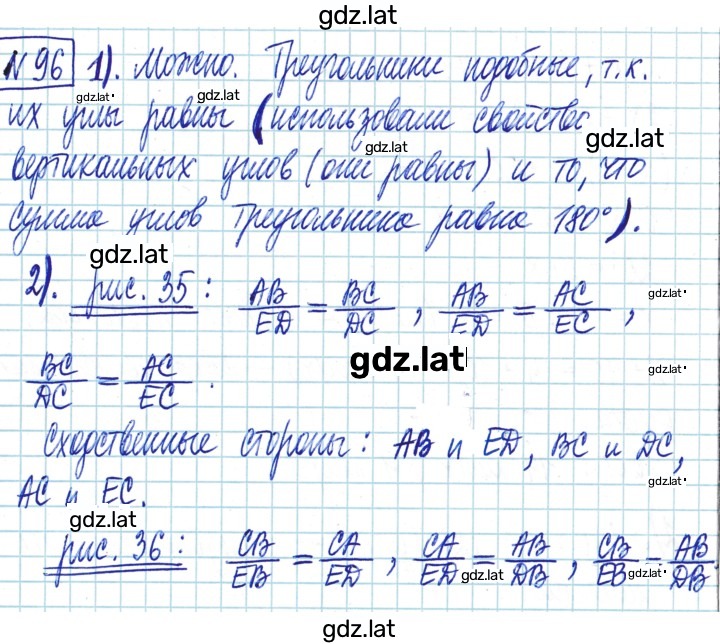 gdz.lat
№96 1). Можно. Треугольники подобные, т.к.
gdz.lat gdz.lat
их углы равны (использовали свойство
gdz.lat gdz.lat
вертикальных углов (они равны) и то, что
сумма углов треугольника равна 180°).
gdz.lat
2). рис. 35 : AB/ED = BC/DC , AB/ED = AC/EC ,
gdz.lat
gdz.lat gdz.lat
BC/DC = AC/EC .
Сходственные стороны: AB и ED, BC и DC,
gdz.lat
AC и EC.
gdz.lat
рис. 36 : CB/EB = CA/ED , CA/ED = AB/DB , CB/EB = AB/DB
gdz.lat gdz.lat
gdz.lat